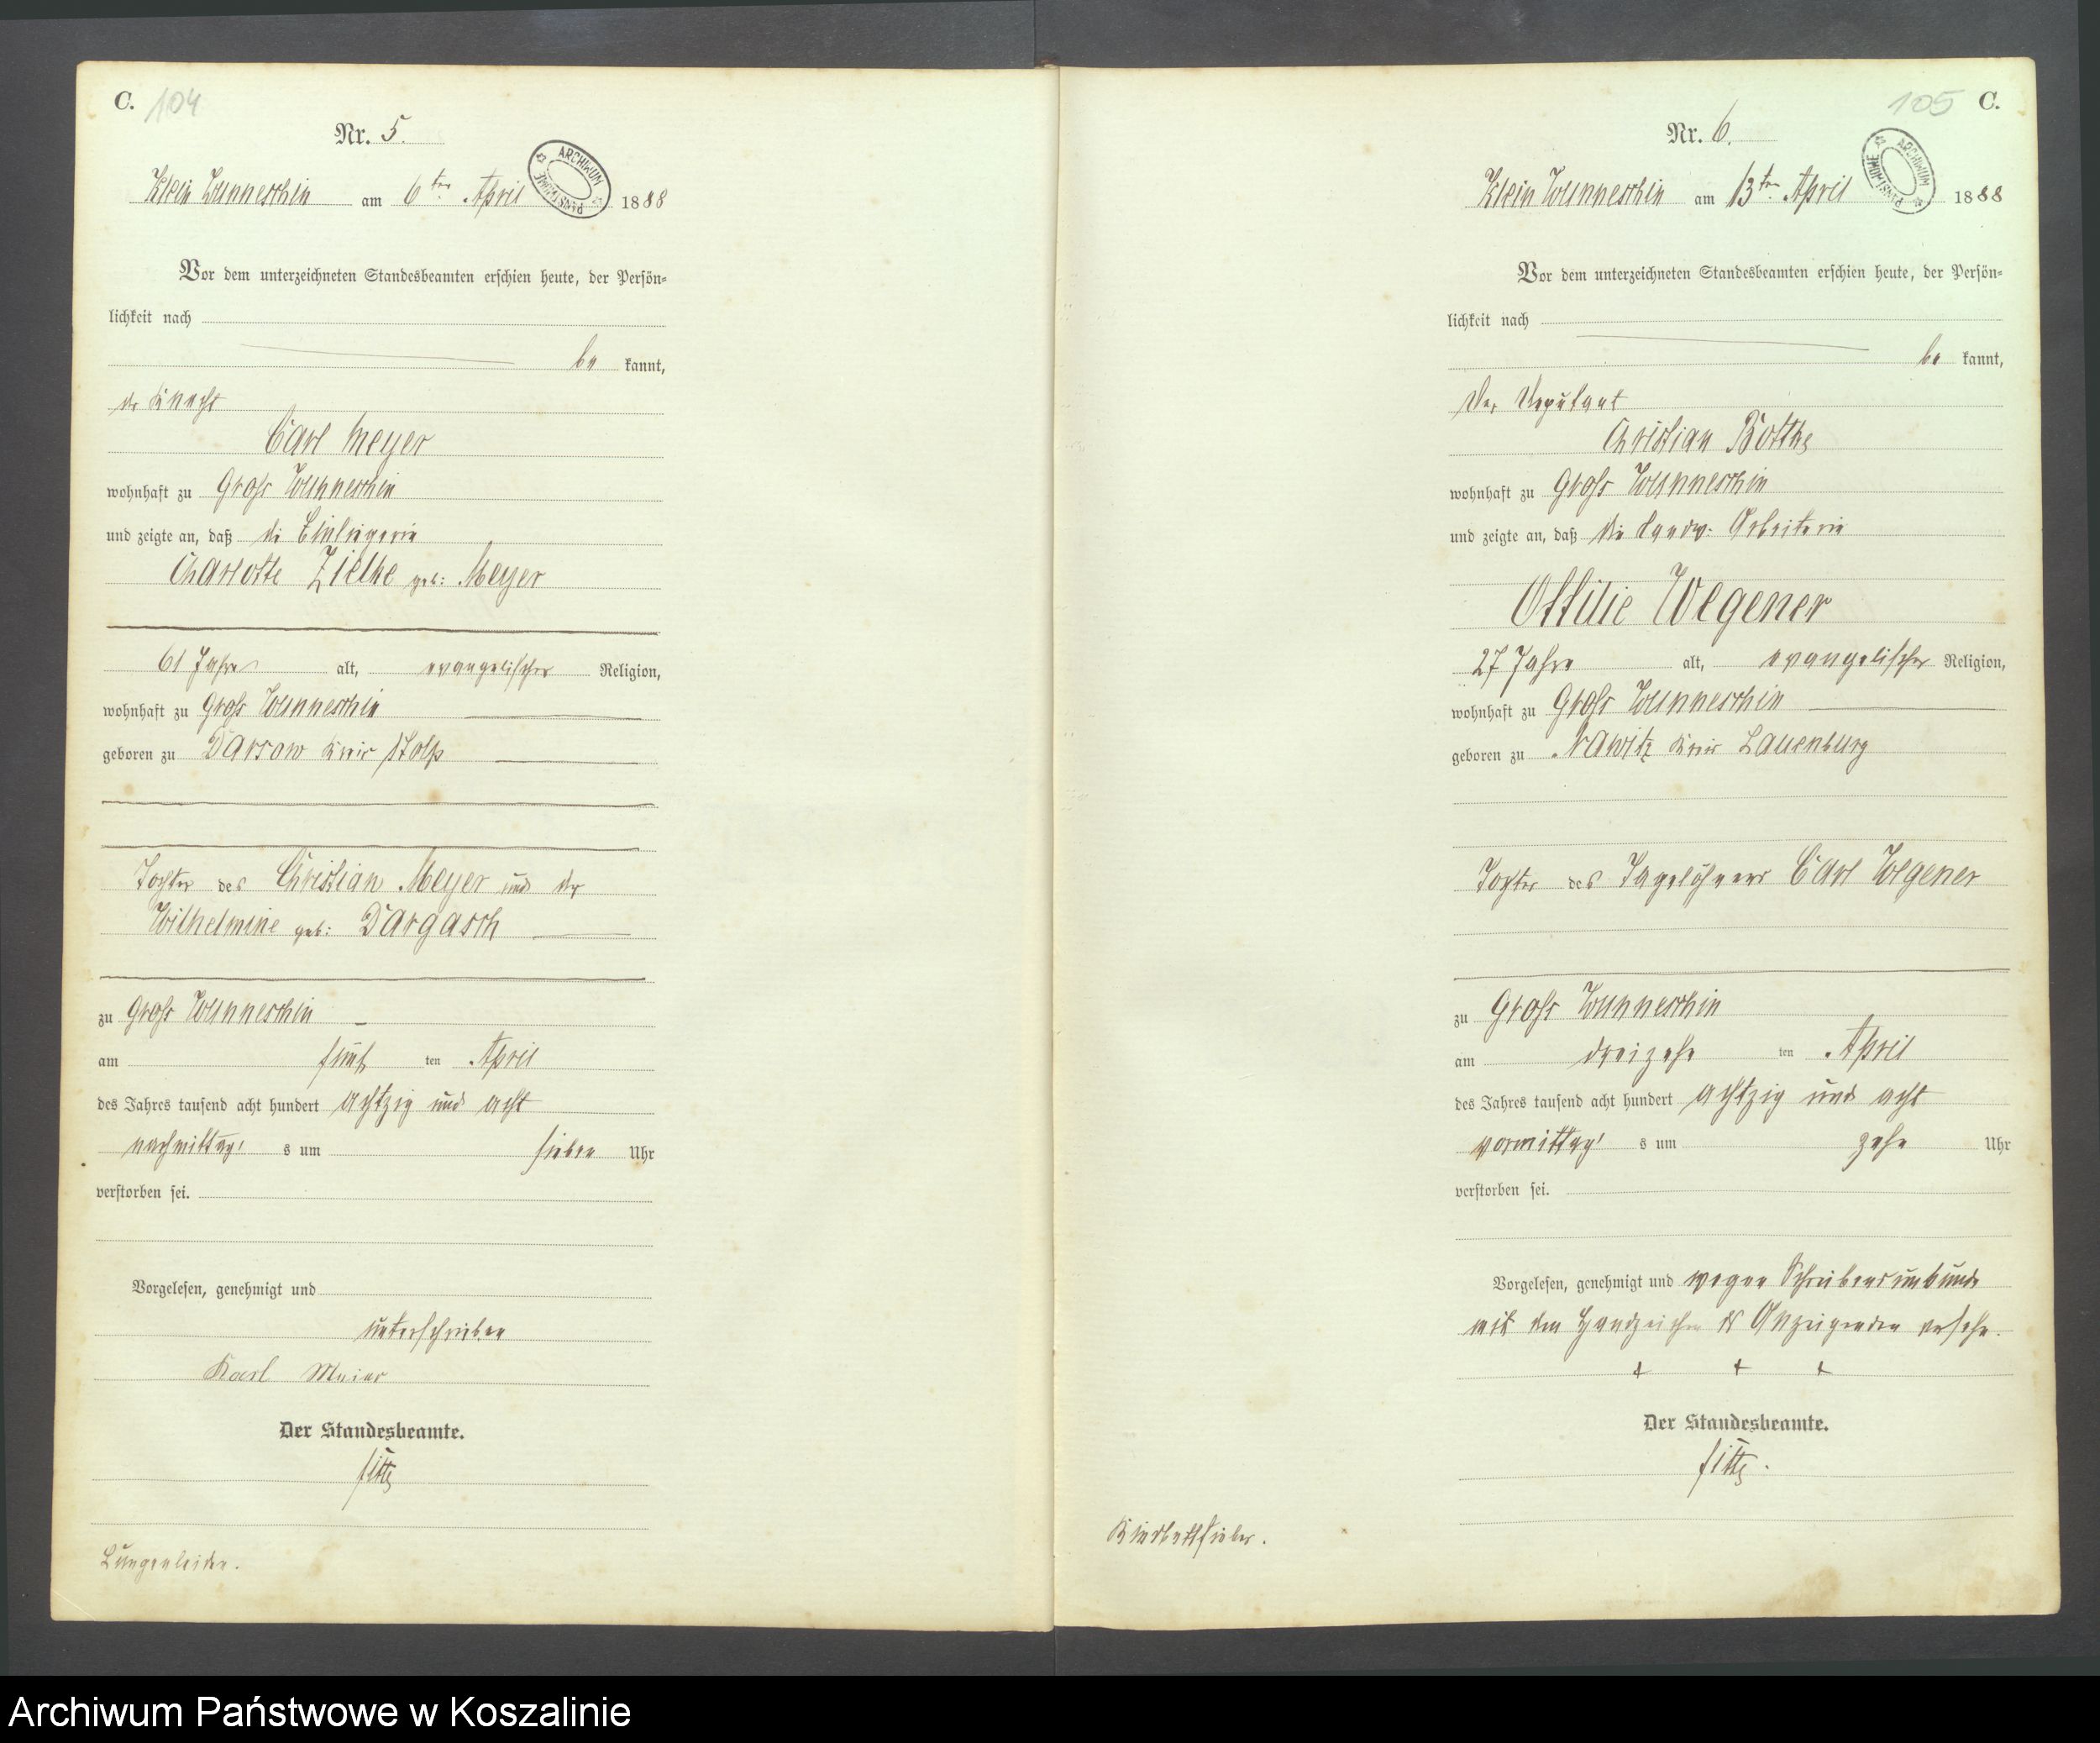 C. 104
Nr. 5.
ARCHIWUM PAŃSTWOWE
Klein Wunneschin am 6ten April 1888
Vor dem unterzeichneten Standesbeamten erschien heute, der Persön-
lichkeit nach
be kannt,
der Knecht
Carl Meyer
wohnhaft zu Groß Wunneschin
und zeigte an, daß die Einliegerin
Charlotte Zielke geb: Meyer
61 Jahre alt, evangelischer Religion,
wohnhaft zu Groß Wunneschin
geboren zu Darsow Kreis Stolp
Tochter des Christian Meyer und der
Wilhelmine geb: Dargasch
zu Groß Wunneschin
am fünf ten April
des Jahres tausend acht hundert achtzig und acht
nachmittag s um sieben Uhr
verstorben sei.
Vorgelesen, genehmigt und
unterschrieben
Karl Meier
Der Standesbeamte.
Lungenleiden.
105 C.
Nr. 6.
ARCHIWUM PAŃSTWOWE
Klein Wunneschin am 13ten April 1888
Vor dem unterzeichneten Standesbeamten erschien heute, der Persön-
lichkeit nach
be kannt,
Der Deputant
Christian Botthe
wohnhaft zu Groß Wunneschin
und zeigte an, daß die landw: Arbeiterin
Ottilie Wegener
27 Jahre alt, evangelischer Religion,
wohnhaft zu Groß Wunneschin
geboren zu Nawitz Kreis Lauenburg
Tochter des Tagelöhners Carl Wegener
zu Groß Wunneschin
am dreizehn ten April
des Jahres tausend acht hundert achtzig und acht
vormittag s um zehn Uhr
verstorben sei.
Vorgelesen, genehmigt und wegen Schreibensunkunde
mit den Handzeichen des Anzeigenden versehn.
+ + +
Der Standesbeamte.
Kindbettfieber.
Archiwum Państwowe w Koszalinie